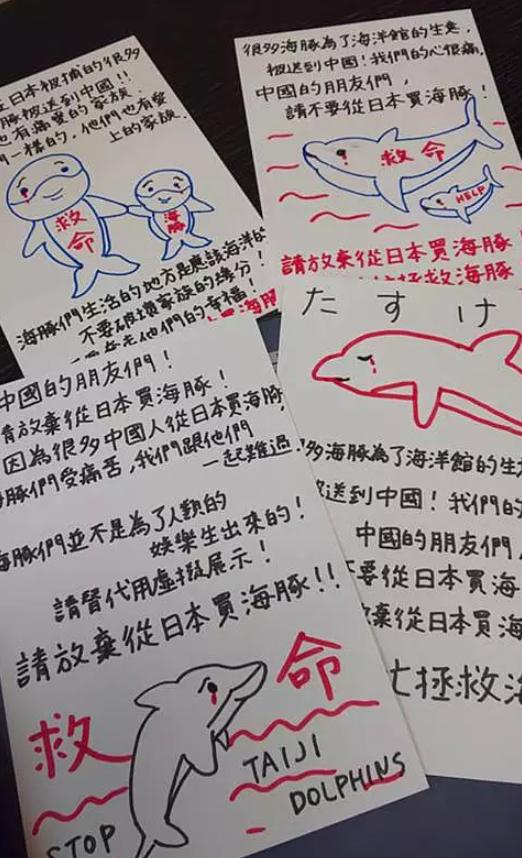 在日本被捕的很多
海豚被送到中國!!
也有痛愛的家族!
們一樣的,他們也有愛
上的家族.
救命
海豚
海豚們生活的地方是應該海洋的
不要破壞家族的緣分!
幸福!
很多海豚為了海洋館的生意,
被送到中國!我們的心很痛.
中國的朋友們,
請不要從日本買海豚!
救命
HELP
請放棄從日本買海豚!
拯救海豚
中國的朋友們!
請放棄從日本買海豚!
因為很多中國人從日本買海豚,
海豚們受痛苦,我們跟他們
一起難過.
海豚們並不是為了人類的
娛樂生出來的!
請替代用虛擬展示!
請放棄從日本買海豚!!
救命
STOP
TAIJI
DOLPHINS
たすけ
多海豚為了海洋館的生
送到中國!我們的
中國的朋友們,
不要從日本買海
棄從日本買海
拯救